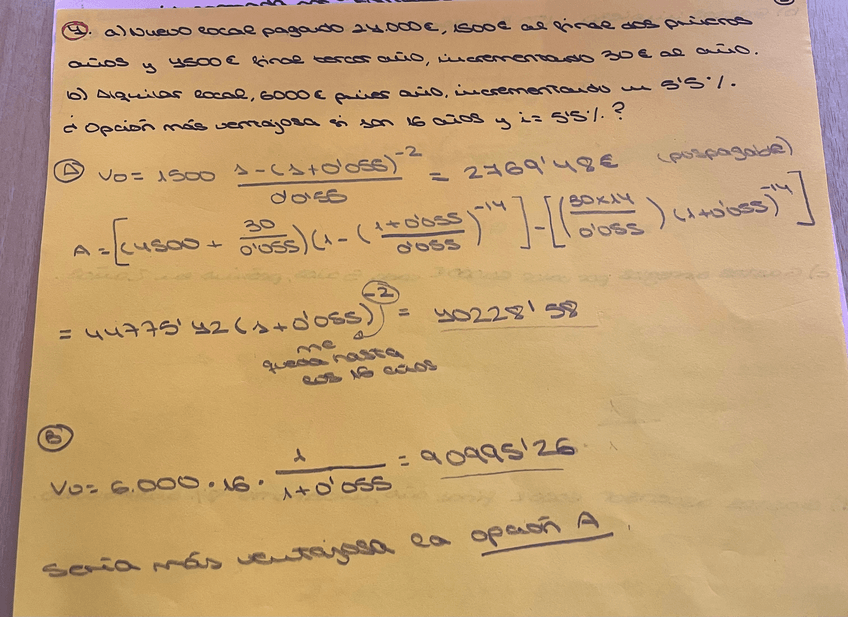 4. a) Nuevo local pagando 24.000€, 1500€ al final dos primeros
años y 4500€ final tercer año, incrementando 30€ al año.
b) Alquilar local, 6000€ primer año, incrementando un 5'5%.
¿Opción más ventajosa si son 16 años y i= 5'5%.?
A V0= 1500 1-(1+0'055)^-2 / 0'055 = 2769'48€ (pospagable)
A = [(4500 + 30/0'055)(1-(1+0'055/0'055)^-14] - [(30x14/0'055)(1+0'055)^-14]
= 44775'42(1+0'055)^-2 = 40228'58
me
queda hasta
los 16 años
B
V0= 6.000 · 16 · 1/1+0'055 = 90995'26
Sería más ventajosa la opción A.